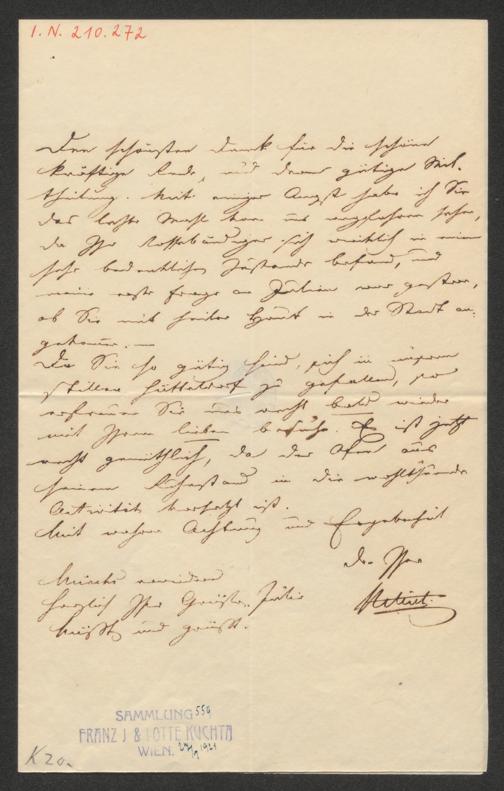 I. N. 210.272
Den schönsten Dank für die schöne
kräftige Rede, und deren gütige Mit-
theilung. Mit einiger Angst habe ich Sie
das letzte Mahl von uns wegfahren sehen,
da Ihr sich wirklich in einem
sehr bedenklichen Zustande befand, und
meine erste Frage an Julien war gestern,
ob Sie mit heiler Haut in der Stadt an-
gekommen. —
Da Sie so gütig sind, sich in unserm
stillen Hütteldorf zu gefallen, so
erfreuen Sie uns recht bald wieder
mit Ihrem lieben Besuche. Es ist jetzt
recht gemüthlich, da der Ofen aus
seinem Ruhestand in die wohlthuende
Activität versetzt ist.
Mit wahrer Achtung und Ergebenheit
der Ihre
erwidern
herzlich Ihre Grüße, Julie
küßt und grüßt.
SAMMLUNG 559
FRANZ J & LOTTE KUCHTA
WIEN. 1921
K 20.